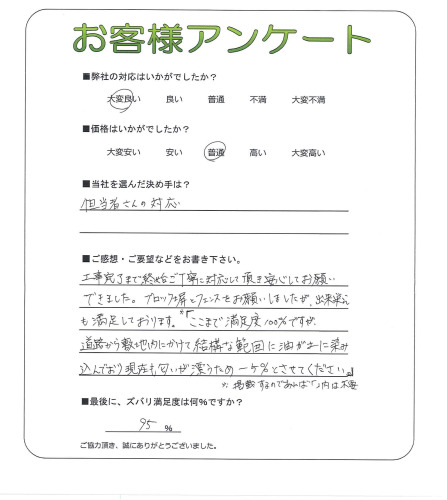 お客様アンケート
■弊社の対応はいかがでしたか？
大変良い 良い 普通 不満 大変不満
■価格はいかがでしたか？
大変安い 安い 普通 高い 大変高い
■当社を選んだ決め手は？
担当者さんの対応
■ご感想・ご要望などをお書き下さい。
工事完了まで終始ご丁寧に対応して頂き安心してお願い
できました。ブロック塀とフェンスをお願いしましたが、出来栄え
も満足しております。※「ここまで満足度100%ですが、
道路から敷地内にかけて結構な範囲に油がおに染み
込んでおり現在も匂いが漂うため-5%とさせてください。」
※掲載するのであれば「」内は不要
■最後に、ズバリ満足度は何%ですか？
95 %
ご協力頂き、誠にありがとうございました。